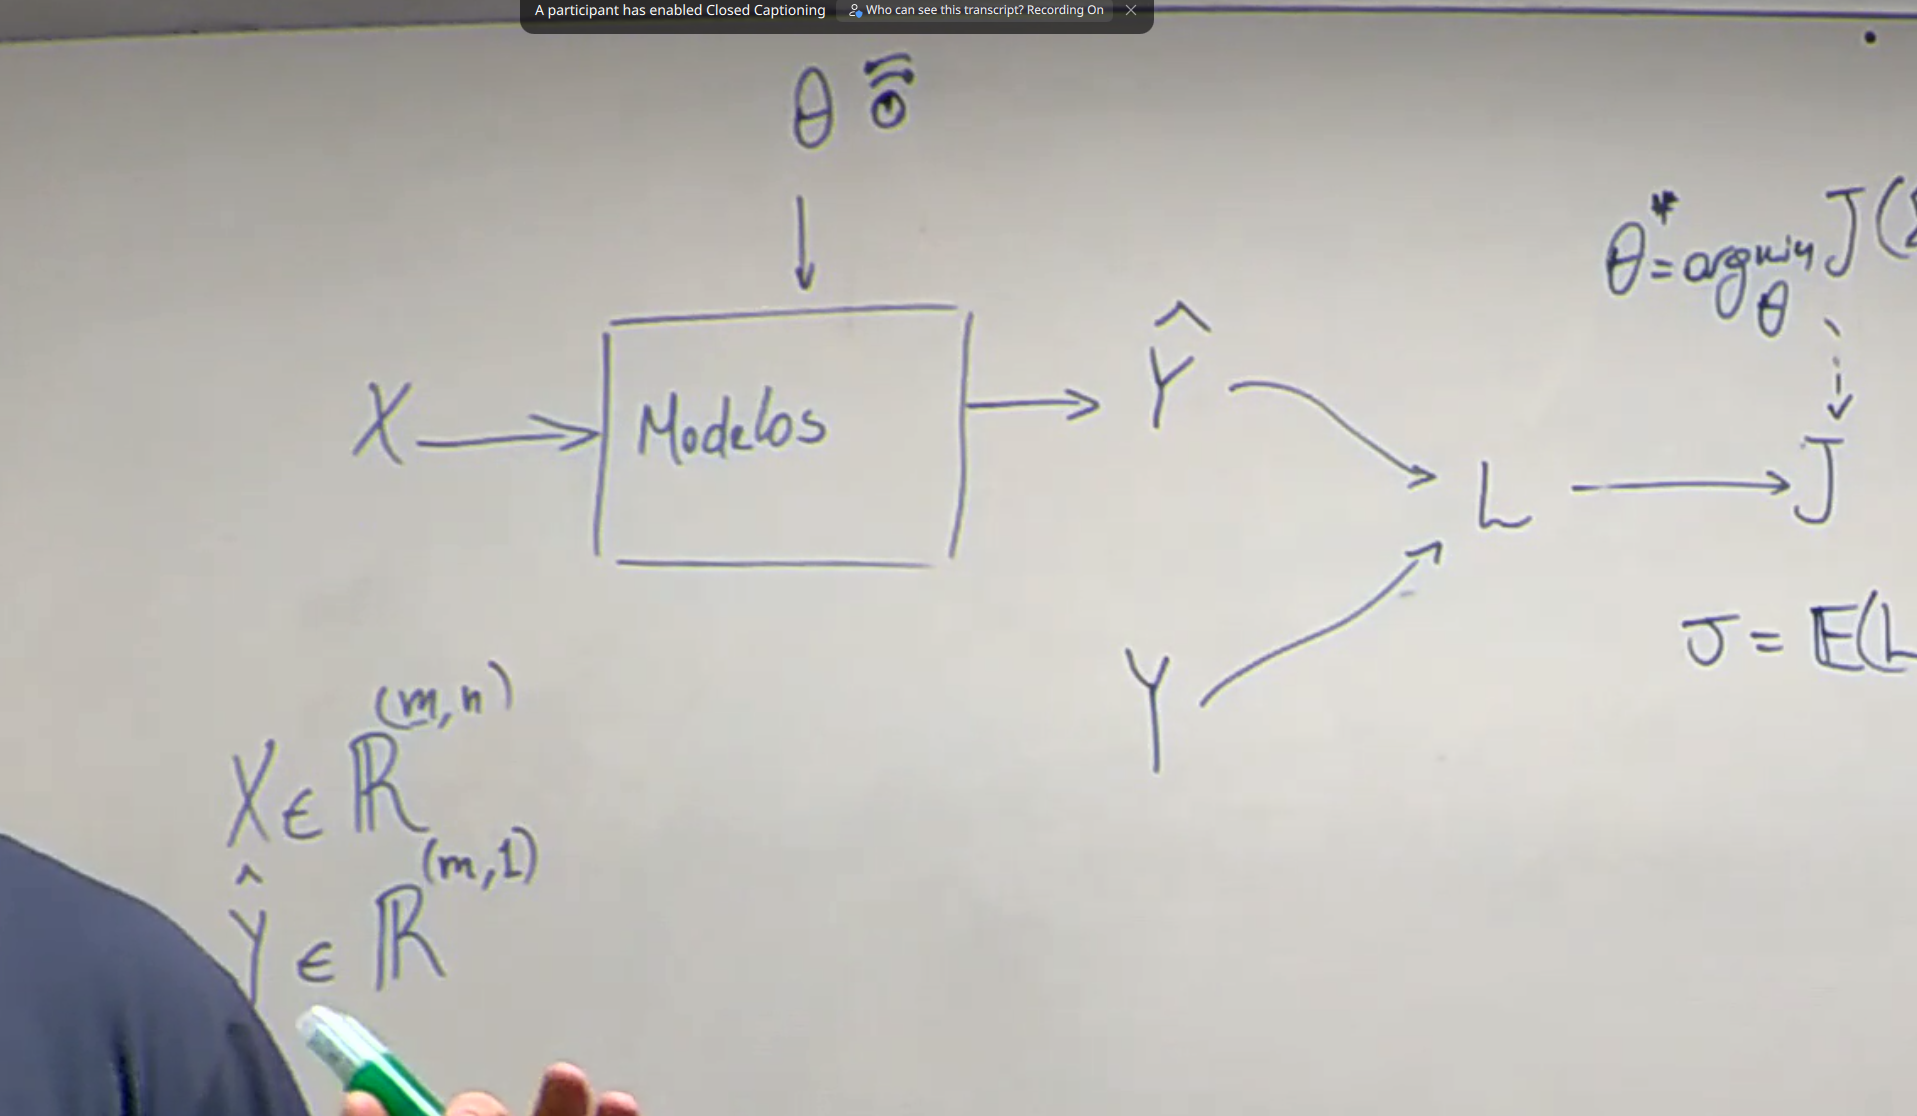 A participant has enabled Closed Captioning Who can see this transcript? Recording On
θ
θ* = argmin J(
θ
X Modelos Ŷ
L J
Y
J = E(L
X ∈ ℝ^(m,n)
Ŷ ∈ ℝ^(m,1)